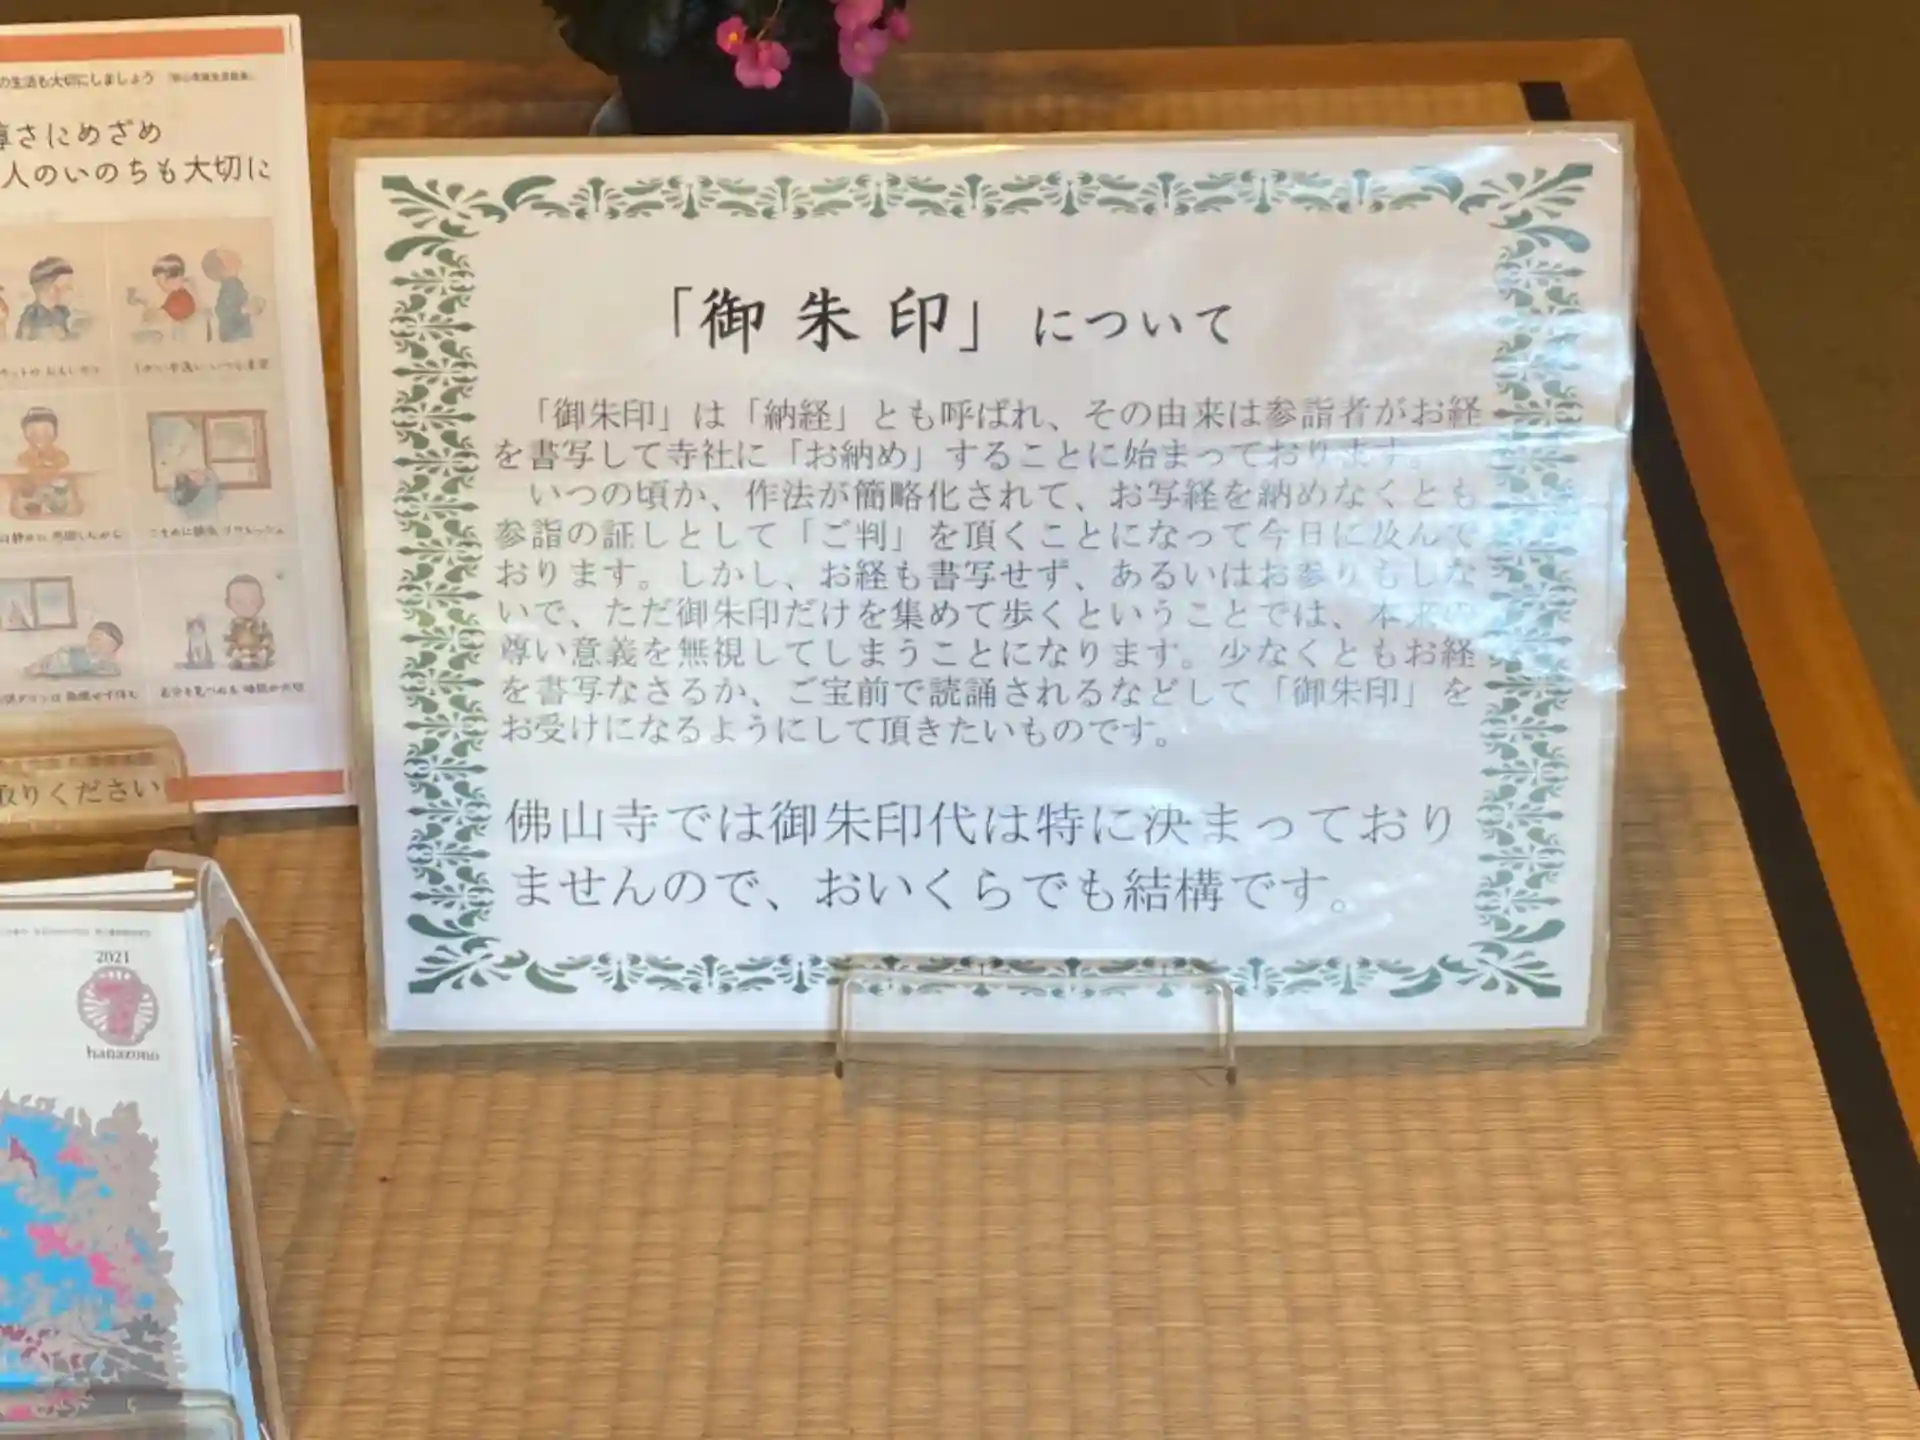 の生活も大切にしましょう
尊さにめざめ
人のいのちも大切に
取りください
2021
hanazono
「御朱印」について
「御朱印」は「納経」とも呼ばれ、その由来は参詣者がお経
を書写して寺社に「お納め」することに始まっております。
いつの頃か、作法が簡略化されて、お写経を納めなくとも
参詣の証しとして「ご判」を頂くことになって今日に及んで
おります。しかし、お経も書写せず、あるいはお参りもしな
いで、ただ御朱印だけを集めて歩くということでは、本来の
尊い意義を無視してしまうことになります。少なくともお経
を書写なさるか、ご宝前で読誦されるなどして「御朱印」を
お受けになるようにして頂きたいものです。
佛山寺では御朱印代は特に決まっており
ませんので、おいくらでも結構です。